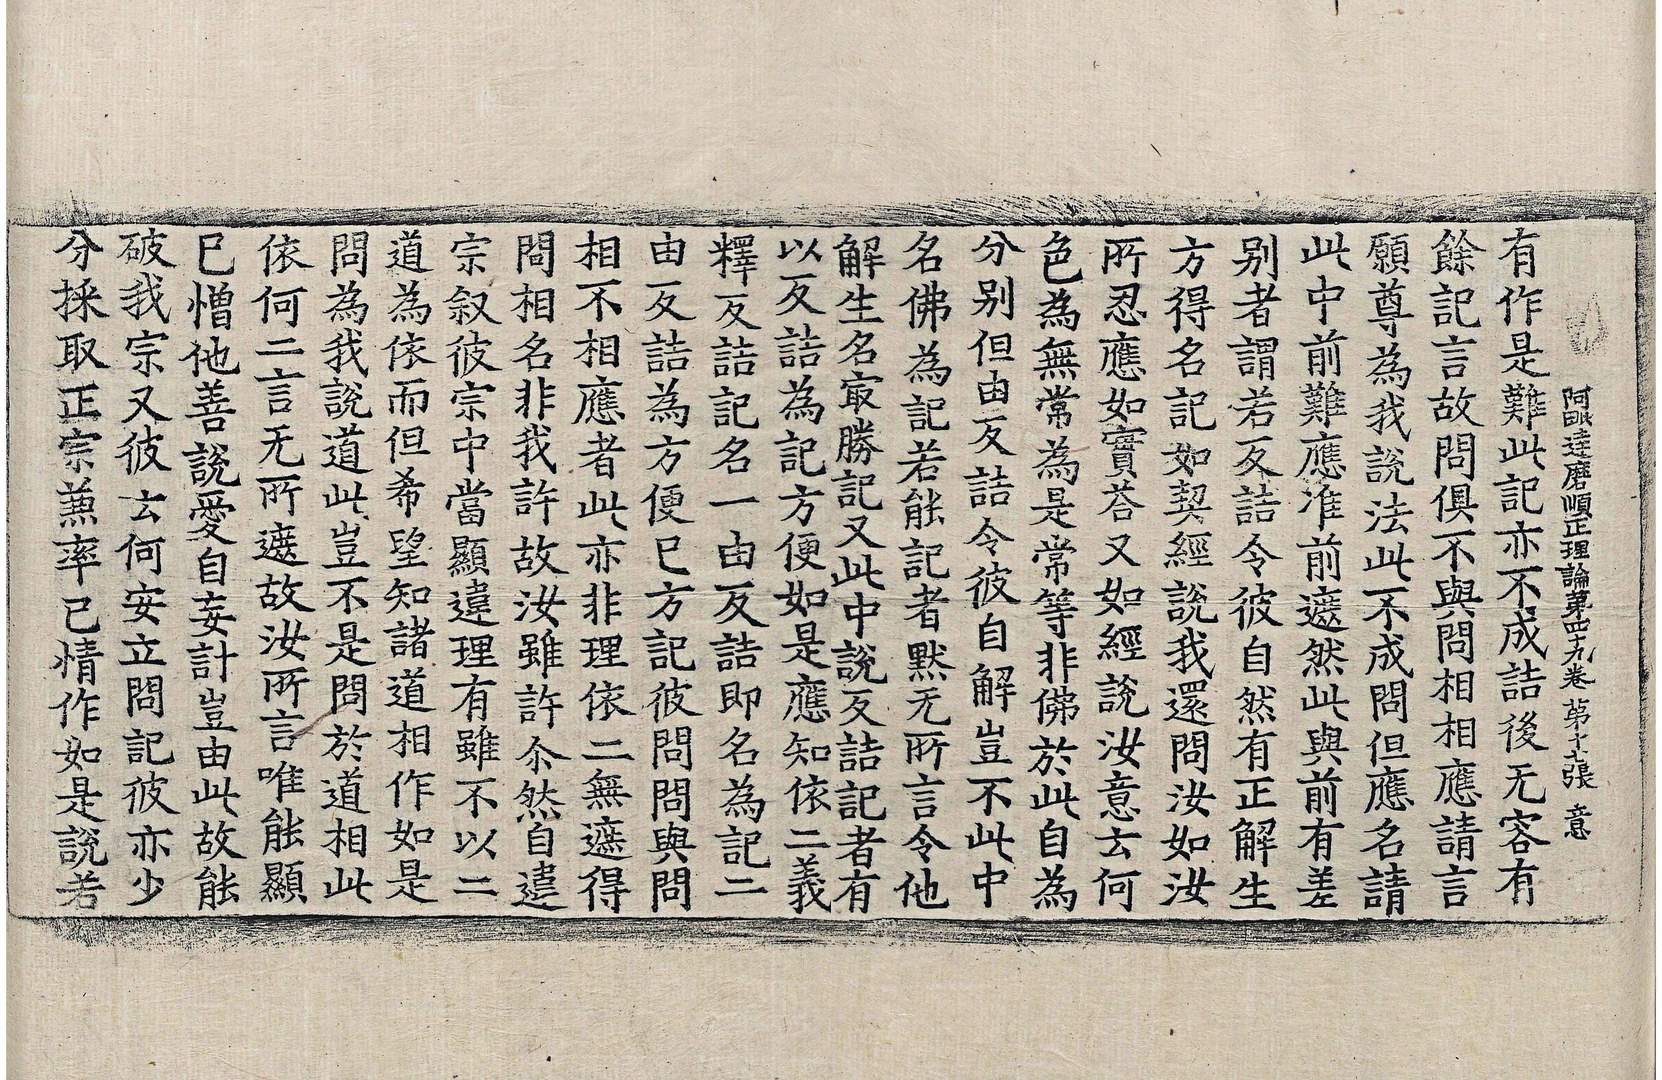 阿毗達磨順正理論第四九卷 第十七張 意
有作是難此記亦不成詰後无容有
餘記言故問俱不與問相相應請言
願尊為我說法此不成問但應名請
此中前難應准前遮然此與前有差
別者謂若反詰令彼自然有正解生
方得名記如契經說我還問汝如汝
所忍應如實荅又如經說汝意云何
色為無常為是常等非佛於此自為
分別但由反詰令彼自解豈不此中
名佛為記若能記者默无所言令他
解生名㝡勝記又此中說反詰記者有
以反詰為記方便如是應知依二義
釋反詰記名一由反詰即名為記二
由反詰為方便已方記彼問問與問
相不相應者此亦非理依二無遮得
問相名非我許故汝雖許尒然自違
宗叙彼宗中當顯違理有雖不以二
道為依而但希望知諸道相作如是
問為我說道此豈不是問於道相此
依何二言无所遮故汝所言唯能顯
已憎他善說愛自妄計豈由此故能
破我宗又彼云何安立問記彼亦少
分採取正宗兼率已情作如是說若